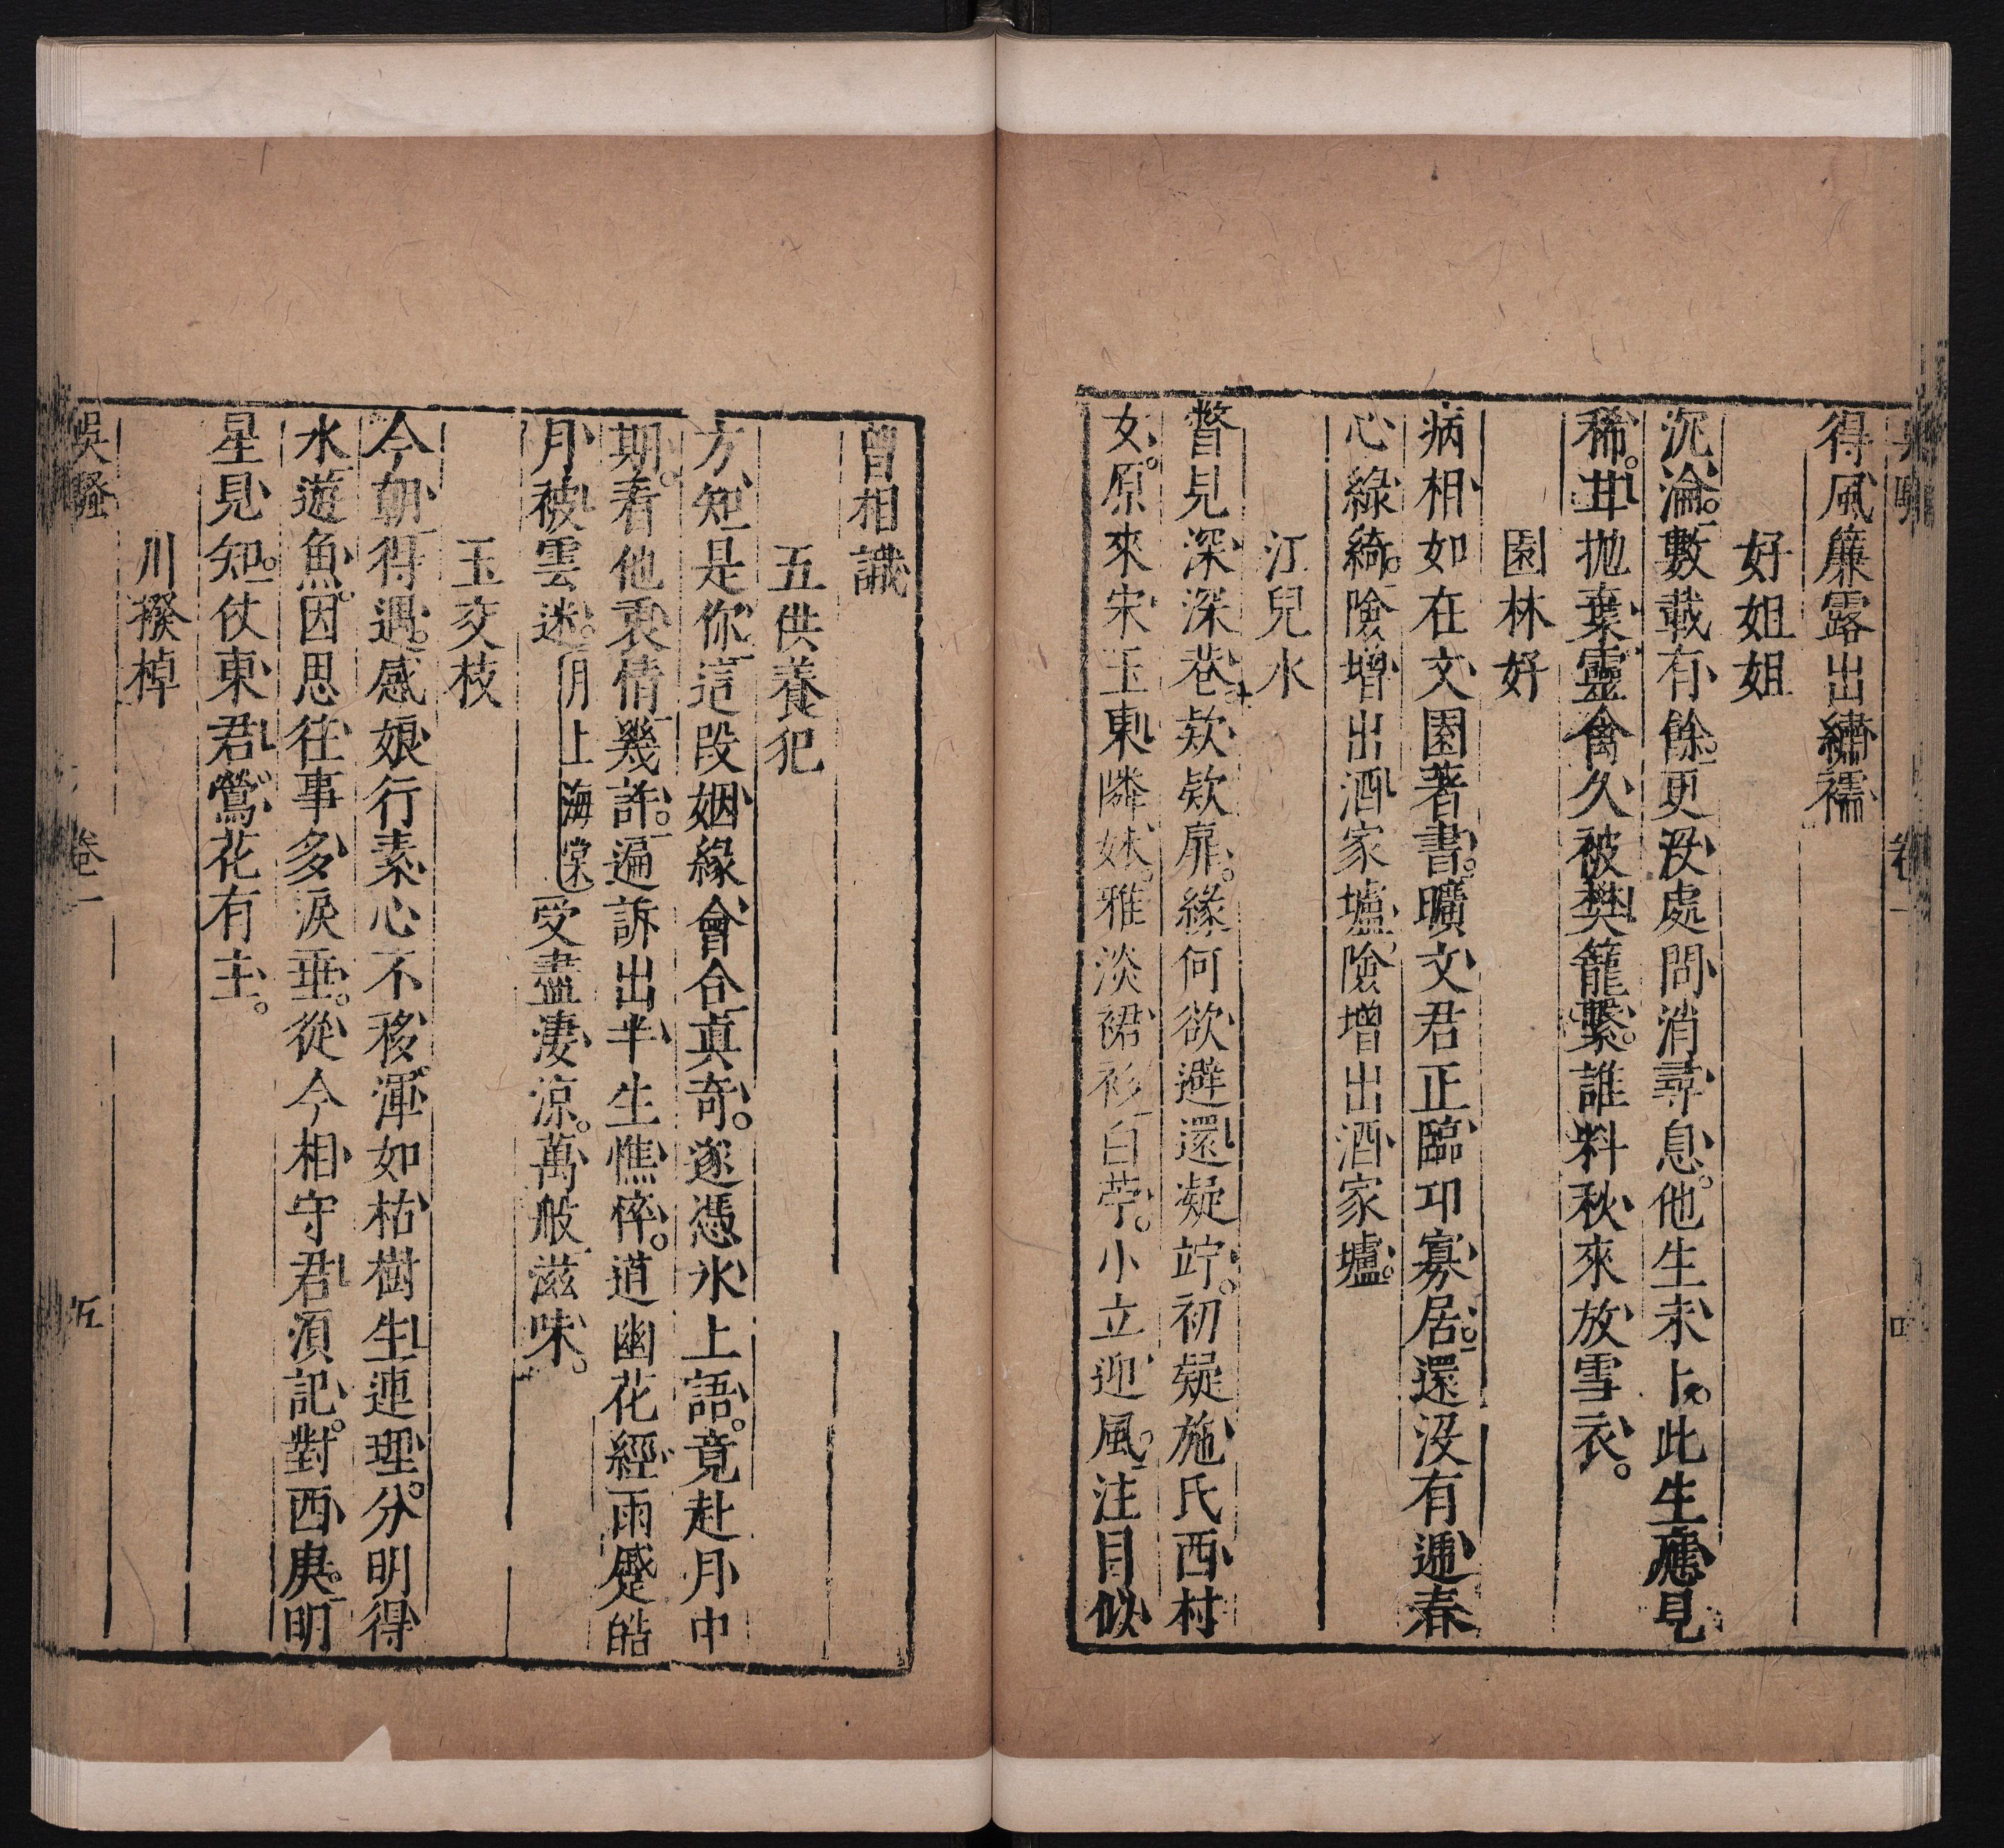 得風簾露出繡襦
好姐姐
沉淪。數載有餘。更沒處問消尋息。他生未卜。此生應見
稀。甘拋棄。靈禽久被樊籠繫。誰料秋來放雪衣。
園林好
病相如在文園著書。曠文君正臨邛寡居。還沒有遞春
心綠綺。險增出酒家壚。險增出酒家壚。
江兒水
瞥見深深巷。欵欵扉。緣何欲避還凝竚。初疑施氏西村
女。原來宋玉東隣妹。雅淡裙衫白苧。小立迎風。注目似
曾相識
五供養犯
方知是你。這段姻緣會合眞奇。遂憑氷上語。竟赴月中
期。看他衷情幾許。遍訴出半生憔悴。道幽花經雨蹙皓
月被雲迷。月上海棠受盡淒凉。萬般滋味。
玉交枝
今朝得遇。感娘行素心不移。渾如枯樹生連理。分明得
水遊魚。因思往事多淚垂。從今相守君須記。對西庚。明
星見知。仗東君鶯花有主。
川撥棹
吳騷
卷一
五